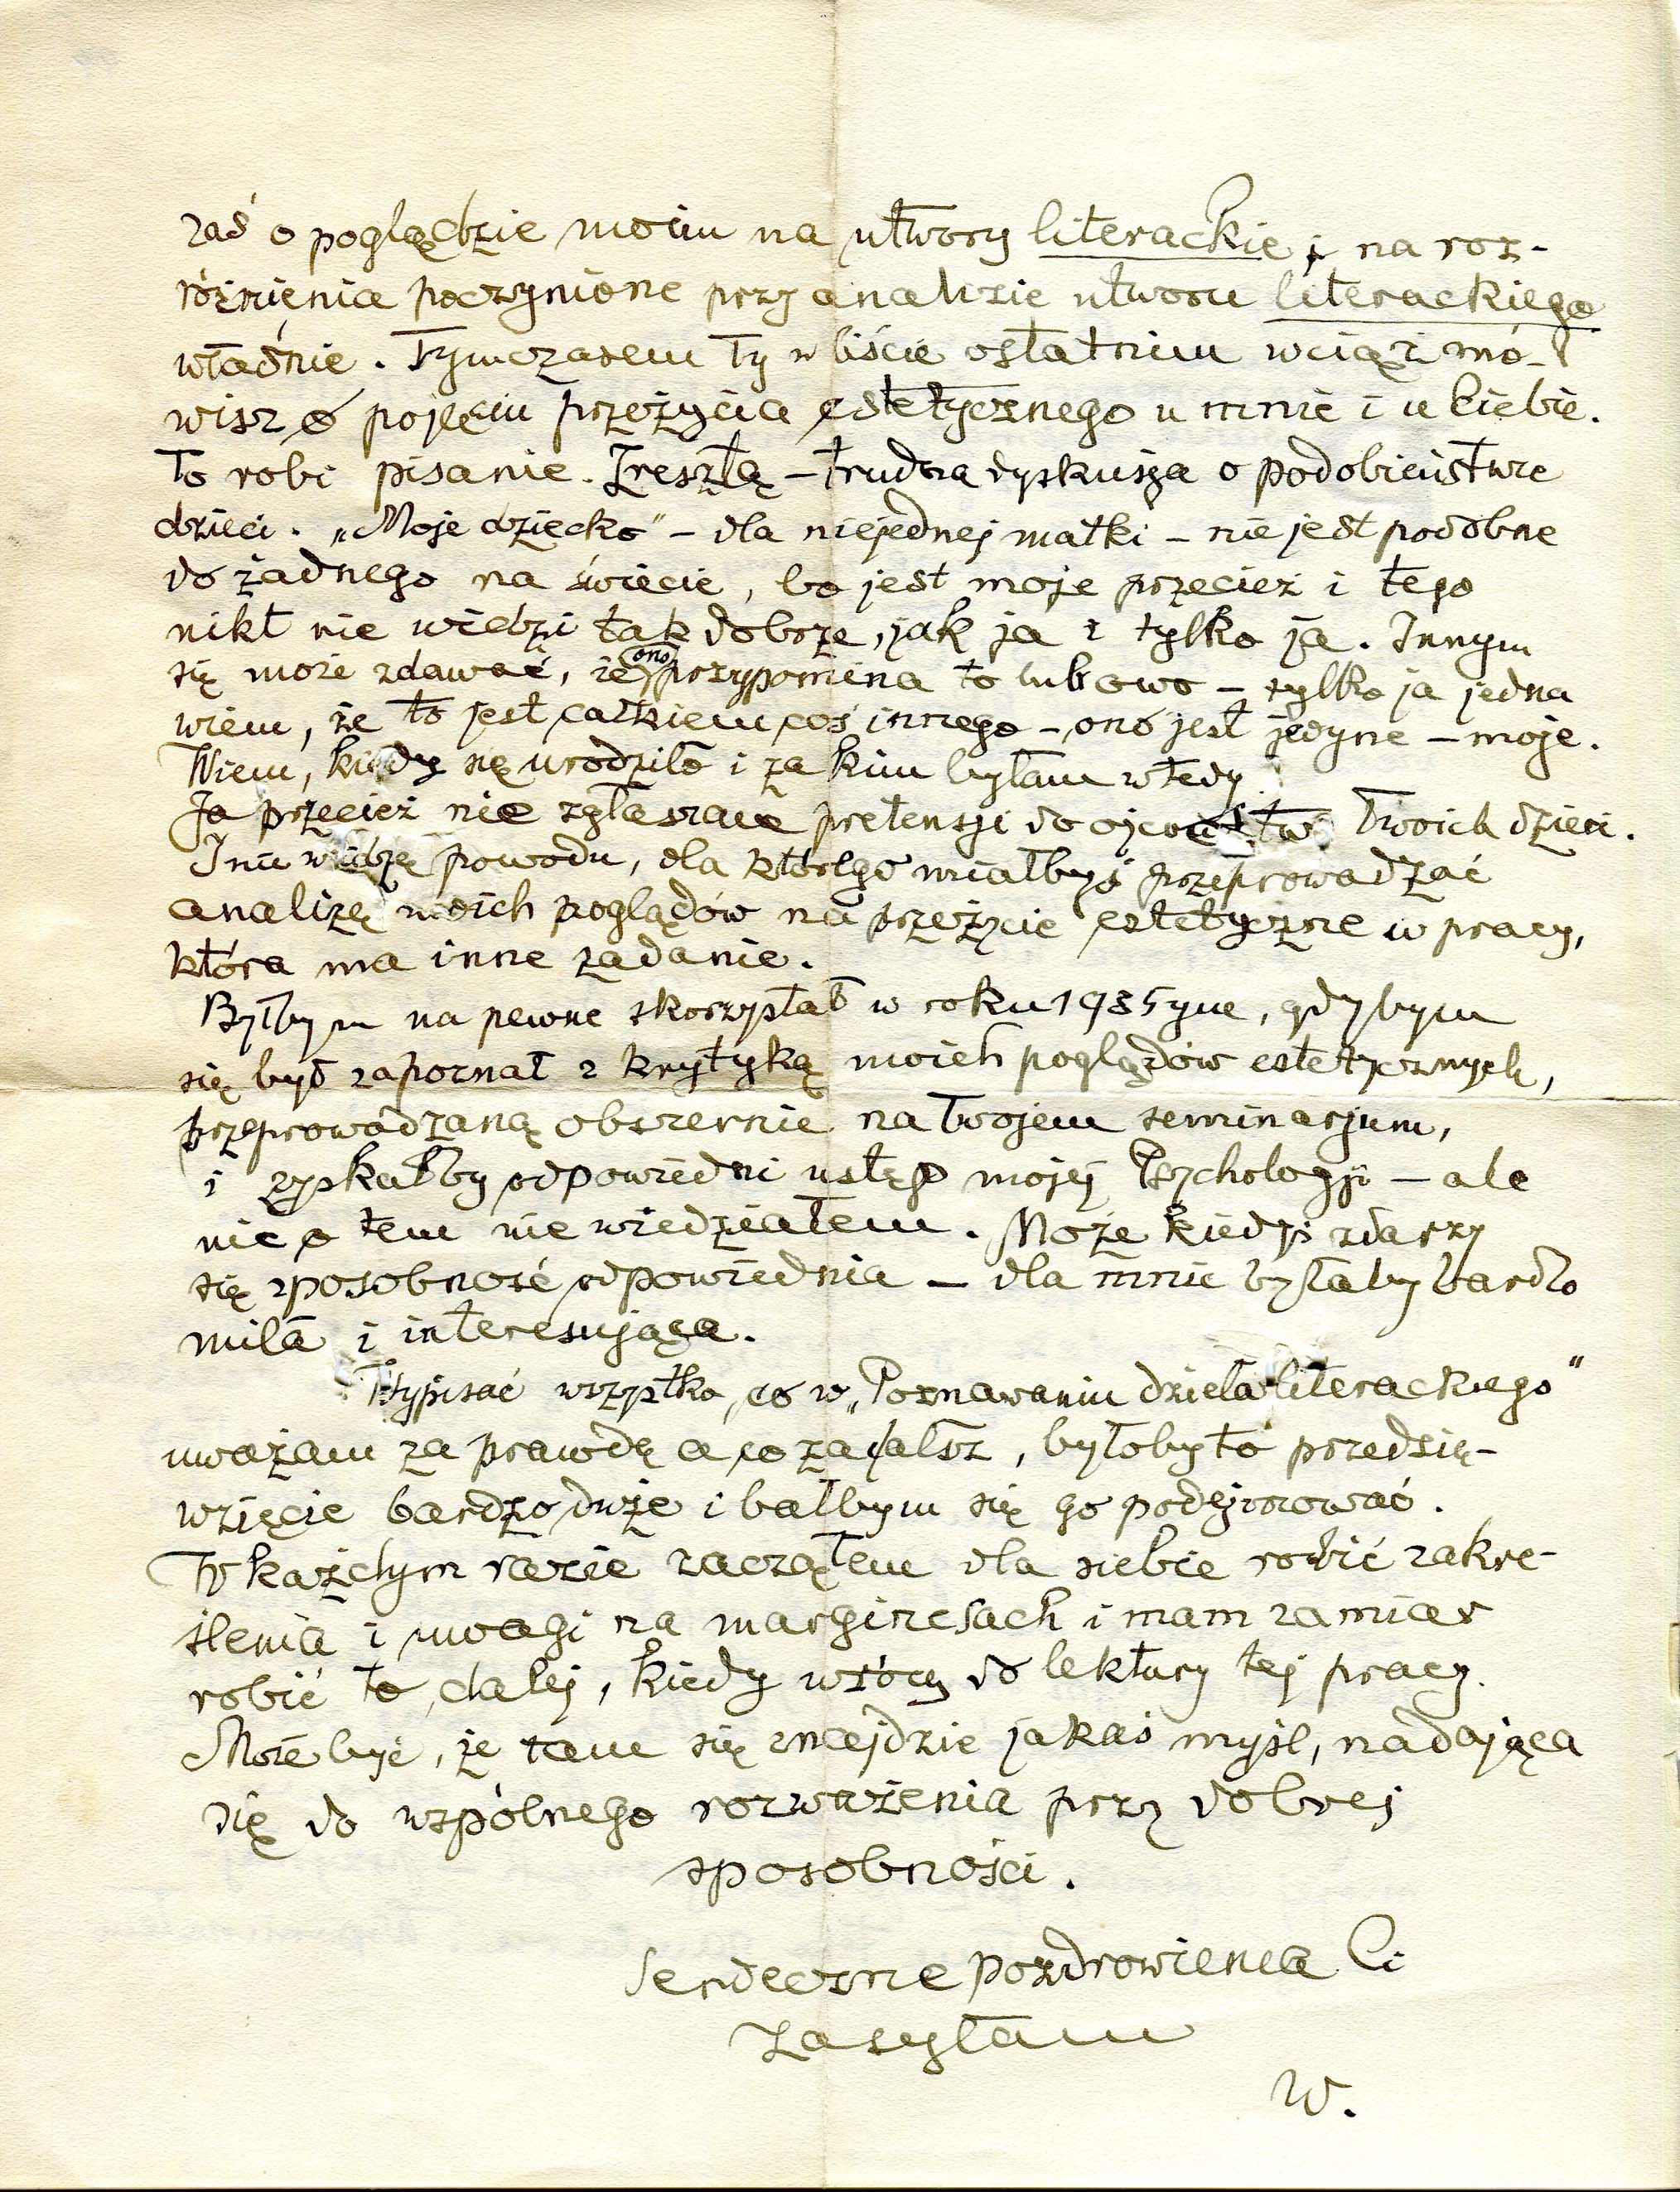 zaś o poglądzie moim na utwory literackie i na roz-
różnienia poczynione przy analizie utworu literackiego
właśnie. Tymczasem Ty w liście ostatnim wciąż mó-
wisz o pojęciu przeżycia estetycznego u mnie i u Ciebie.
To robi pisanie. Zresztą – trudna dyskusja o podobieństwie
dzieci. „Moje dziecko" – dla niejednej matki – nie jest podobne
do żadnego na świecie, bo jest moje przecież i tego
nikt nie widzi tak dobrze, jak ja i tylko ja. Innym
się może zdawać, że ono przypomina to lub owo – tylko ja jedna
wiem, że to jest całkiem coś innego – ono jest jedyne – moje.
Wiem, kiedy się urodziło i za kim byłam wtedy.
Ja przecież nie zgłaszam pretensji do ojcostwa Twoich dzieci.
I nie widzę powodu, dla którego miałbyś przeprowadzać
analizę moich poglądów na przeżycie estetyczne w pracy,
która ma inne zadanie.
Byłbym na pewne skorzystał w roku 1935ym, gdybym
się był zapoznał z krytyką moich poglądów estetycznych,
przeprowadzaną obszernie na Twojem seminarjum,
i zyskałby odpowiedni ustęp mojej Psychologji – ale
nic o tem nie wiedziałem. Może kiedyś zdarzy
się sposobność odpowiednia – dla mnie byłaby bardzo
miła i interesująca.
Wypisać wszystko, co w „Poznawaniu dzieła literackiego"
uważam za prawdę a co za fałsz, byłoby to przedsię-
wzięcie bardzo duże i bałbym się go podejmować.
W każdym razie zacząłem dla siebie robić zakre-
ślenia i uwagi na marginesach i mam zamiar
robić to dalej, kiedy wrócę do lektury tej pracy.
Może być, że tam się znajdzie jakaś myśl, nadająca
się do wspólnego rozważenia przy dobrej
sposobności.
Serdeczne pozdrowienia Ci
zasyłam
W.